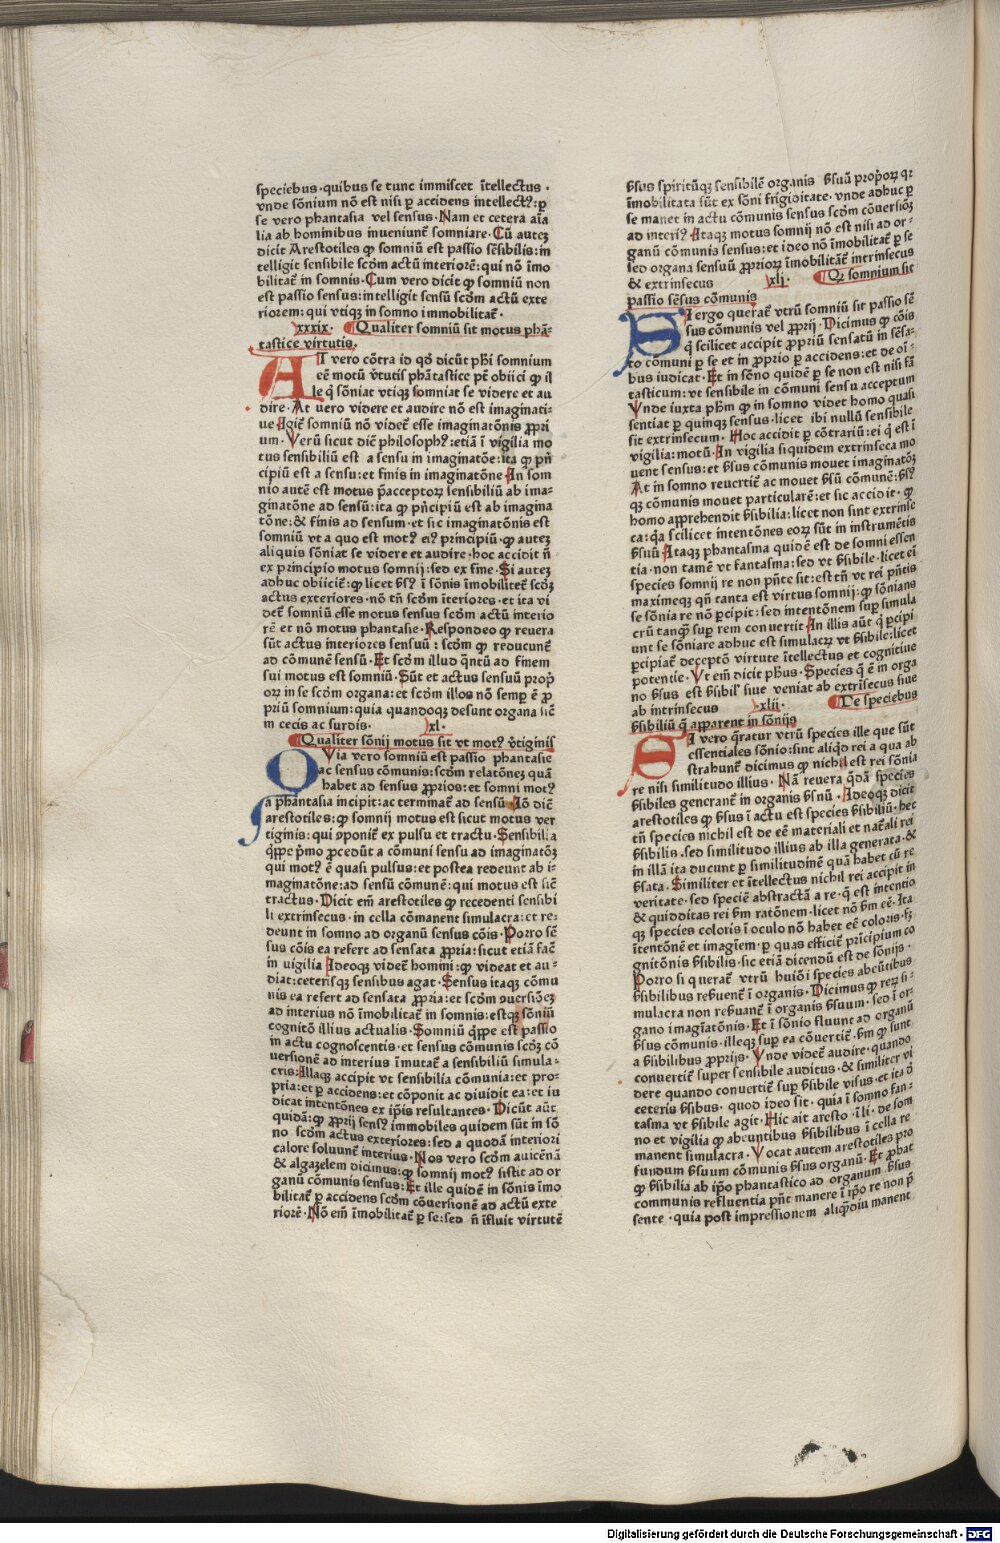 speciebus·quibus se tunc immiscet ītellectus·
vnde sōnium nō est nisi ꝑ accidens intellectꝰ:ꝑ
se vero phantasia vel sensus·Nam et cetera aīa
lia ab hominibus inveniunť somniare·Cū autez
dicit Arestotiles ꝙ somniū est passio sēsibilis:in
telligit sensibile scdm actū interiorē:qui nō īmo
bilitať in somnis·Cum vero dicit ꝙ somniū non
est passio sensus:intelligit sensū scdm actū exte
riorem:qui vtiqꝫ in somno immobilitať·
xxxix· Qualiter somniū sit motus phā-
tastice virtutis·
AT vero cōtra id qđ dicūt ph̄i somnium
eē motū v̄tutis phātastice pt̄ obiici ꝙ il
le q̇ sōniat vtiqꝫ somniat se videre et au
dire·At vero videre et audire nō est imaginati-
ue Igiť somniū nō videť esse imaginatōnis ꝓpri
um·Verū sicut dic̄ philosophꝰ:etiā ī vigilia mo
tus sensibiliū est a sensu in imaginatōe:ita ꝙ pn̄
cipiū est a sensu:et finis in imaginatōne In som
nio autē est motus p̄acceptoꝝ sensibiliū ab ima-
ginatōne ad sensū:ita ꝙ pn̄cipiū est ab imagina
tōne:& finis ad sensum·et sic imaginatōnis est
somniū vt a quo est motꝰ eiꝰ principiū·ꝙ autez
aliquis sōniat se videre et audire·hoc accidit n̄
ex principio motus somnij:sed ex fine·Si autez
adhuc obiiciť:ꝙ licet v̄sꝰ ī sōnis īmobiliteť scdꝫ
actus exteriores·nō tn̄ scdm īteriores·et ita vi
deť somniū esse motus sensus scdm actū interio
rē et nō motus phantasie·Respondeo ꝙ revera
sūt actus interiores sensuū:scdm ꝙ reducunť
ad cōmunē sensū·Et scdm illud qn̄tū ad finem
sui motus est somniū·Sūt et actus sensuū prop̄
oꝝ in se scdm organa:et scdm illos nō semꝑ ē ꝓ
priū somnium:quia quandoqꝫ desunt organa sic̄
in cecis ac surdis· xl·
Qualiter sōnij motus sit vt motꝰ v̄tiginis
QVia vero somniū est passio phantasie
ac sensus cōmunis:scdm relatōnez quā
habet ad sensus ꝓprios:et somni motꝰ
a phantasia incipit:ac terminať ad sensū Iō dic̄
arestotiles:ꝙ somnij motus est sicut motus ver
tiginis:qui ꝯponiť ex pulsu et tractu·Sensibilia
q̄ppe p̄mo ꝓcedūt a cōmuni sensu ad imaginatōꝫ
qui motꝰ ē quasi pulsus:et postea redeunt ab i-
maginatōne:ad sensū cōmunē:qui motus est sic̄
tractus·Dicit em̄ arestotiles ꝙ recedenti sensibi
li extrinsecus·in cella cōmanent simulacra:et re-
deunt in somno ad organū sensus cōis·Porro sē
sus cōis ea refert ad sensata ꝓpria:sicut etiā fac̄
in vigilia Ideoqꝫ videť homini:ꝙ videat et au-
diat:ceterisqꝫ sensibus agat·Sensus itaqꝫ cōmu
nis ea refert ad sensata ꝓpria:et scdm ꝯuersiōez
ad interius nō īmobilitať in somnis:estqꝫ sōniū
cognitō illius actualis·Somniū q̄ppe est passio
in actu cognoscentis·et sensus cōmunis scdꝫ cō
uersionē ad interius īmutať a sensibiliū simula-
cris:Illaqꝫ accipit vt sensibilia cōmunia:et pro-
pria:et ꝑ accidens:et cōponit ac diuidit ea:et iu
dicat intentōnes ex ip̄is resultantes·Dicūt aūt
quidā:ꝙ ꝓprij sensꝰ immobiles quidem sūt in sō
no scdm actus exteriores:sed a quodā interiori
calore soluunť interius·Nos vero scdm auicēnā
& algazelem dicimus:ꝙ somnij motꝰ sistit ad or
ganū cōmunis sensus:Et ille quidē in sōnis īmo
bilitať ꝑ accidens scdm cōuersionē ad actū exte
riorē·Nō em̄ īmobilitať ꝑ se:sed n̄ īfluit virtutē
v̄sus spiritūqꝫ sensibilē organis v̄suū prop̄oꝝ qr
īmobilitata sūt ex sōni frigiditate·vnde adhuc ꝑ
se manet in actu cōmunis sensus scdm cōuersiōꝫ
ad interiꝰ Itaqꝫ motus somnij nō est nisi ad or-
ganū cōmunis sensus:et ideo nō īmobilitať ꝑ se
sed organa sensuū ꝓprioꝝ īmobilitāť intrinsecus
& extrinsecus xlj· Qꝛ somnium sit
passio sēsus cōmunis
SI ergo querať vtrū somniū sit passio sē
sus cōmunis vel ꝓprij·Dicimus ꝙ cōis
q̇ scilicet accipit ꝓpriū sensatū in sēsa-
to comuni ꝑ se et in ꝓprio ꝑ accidens:et de oī-
bus iudicat·Et in sōno quidē ꝑ se non est nisi fā
tasticum:vt sensibile in cōmuni sensu acceptum
Vnde iuxta ph̄m ꝙ in somno videt homo quasi
sentiat ꝑ quinqꝫ sensus·licet ibi nullū sensibile
sit extrinsecum·Hoc accidit ꝑ cōtrariū:ei q̇ est ī
vigilia:motū·In vigilia siquidem extrinseca mo
uent sensus:et v̄sus cōmunis mouet imaginatōꝫ
At in somno reuertiť ac mouet v̄sū cōmunē:v̄sꝰ
qꝫ cōmunis mouet particularē:et sic accidit·ꝙ
homo apprehendit v̄sibilia:licet non sint extrinse
ca:q̄a scilicet intentōnes eoꝝ sūt in instrumētis
v̄suū Itaqꝫ phantasma quidē est de somni essen
tia·non tamē vt fantasma:sed vt v̄sibile·licet ei
species somnij re non pn̄te sit:est tn̄ vt rei pn̄tis
maximeqꝫ qn̄ tanta est virtus somnij:ꝙ sōnians
se sōnia re nō ꝑcipit:sed intentōnem suꝑ simula
crū tanqꝫ suꝑ rem conuertit In illis aūt q̇ ꝑcipi
unt se sōniare adhuc est simulacꝝ vt v̄sibile:licet
ꝑcipiať deceptō virtute ītellectus et cognitiue
potentie·Vt em̄ dicit ph̄us·Species q̄ ē in orga
no v̄sus est v̄sibilꝭ siue veniat ab extrīsecus siue
ab intrinsecus xlii· De speciebus
v̄sibiliū q̄ apparent in sōnijs
SI vero q̄ratur vtrū species ille que sūt
essentiales sōnio:sint aliqd rei a qua ab
strahunť dicimus ꝙ nichil est rei sōnia
re nisi similitudo illius·Nā reuera q̄dā species
v̄sibiles generanť in organis v̄snū·Ideoqꝫ dicit
arestotiles ꝙ v̄sus ī actu est species v̄sibiliū·hec
tn̄ species nichil est de eē materiali et nat̄ali rei
v̄sibilis·sed similitudo illius ab illa generata·&
in illā ita ducunt ꝑ similitudinē quā habet cū re
v̄sata·Similiter et ītellectus nichil rei accipit in
veritate·sed speciē abstractā a re·q̄ est intentio
& quidditas rei v̄m ratōnem·licet nō v̄m eē·Ita
qꝫ species coloris ī oculo nō habet eē coloris·sꝫ
ītentōnē et imagīem·ꝑ quas efficiť prīcipium co
gnitōnis v̄sibilis·sic etiā dicendū est de sōnijs·
Porro si querať vtrū huiōi species abeūtibus
v̄sibilibus rev̄uenť ī organis·Dicimus ꝙ reꝝ si-
mulacra non rev̄uanť ī organis v̄suum·sed ī or-
gano imagīatōnis·Et ī sōnio fluunt ad organū
v̄sus cōmunis·illeqꝫ suꝑ ea cōuertiť·v̄m ꝙ sunt
a v̄sibilibus ꝓprijs·Vnde videť audire·quando
conuertiť super sensibile auditus·& similiter vi
dere quando conuertiť suꝑ v̄sibile visus·et ita d̄
ceteris v̄sibus·quod ideo sit·quia ī somno fan-
tasma vt v̄sibile agit·Hic ait aresto·ī li·de som
no et vigilia ꝙ abeuntibus v̄sibilibus ī cella re
manent simulacra·Vocat autem arestotiles pro
fundum v̄suum cōmunis v̄sus organū·Et ꝓbat
ꝙ v̄sibilia ab ip̄o phantastico ad organum v̄sus
communis refluentia pn̄t manere ī ip̄o re non p̄
sente·quia post impressionem aliqdiu manent
Digitalisierung gefördert durch die Deutsche Forschungsgemeinschaft - DFG